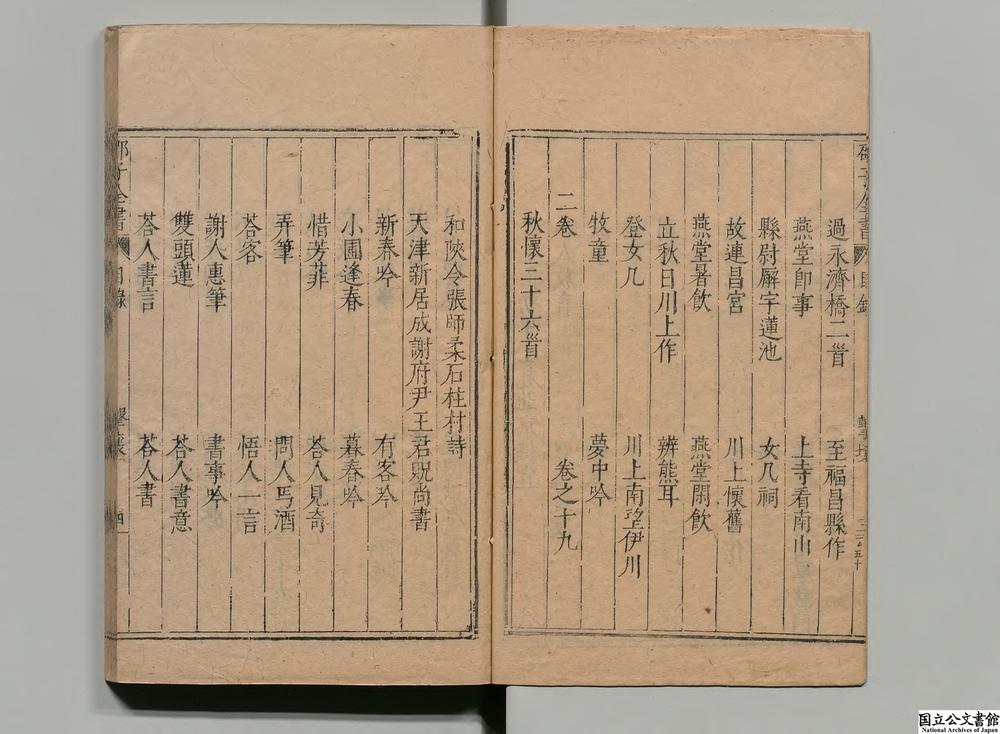 過永濟橋二首 至福昌縣作
燕堂卽事 上寺看南山
縣尉廨宇蓮池 女几祠
故連昌宮 川上懷舊
燕堂暑飮 燕堂閒飮
立秋日川上作 辨熊耳
登女几 川上南望伊川
牧童 夢中吟
二卷 卷之十九
秋懷三十六首
和陜令張師柔石柱村詩
天津新居成謝府尹王君貺尚書
新春吟 有客吟
小圃逢春 暮春吟
惜芳菲 荅人見寄
弄筆 問人丐酒
荅客 悟人一言
謝人惠筆 書事吟
雙頭蓮 荅人書意
荅人書言 荅人書
子全書 目錄 擊壤 四
国立公文書館
National Archives of Japan